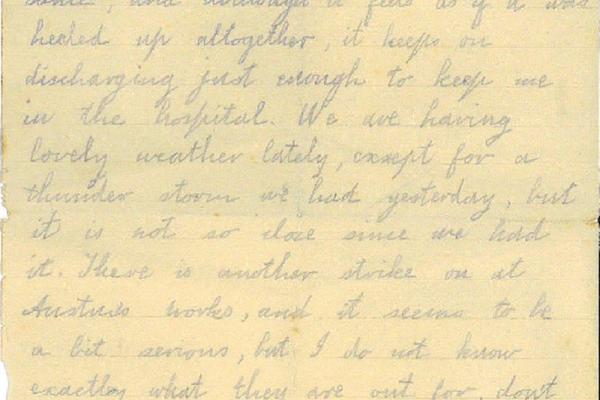 same, and although it feels as if it was
healed up altogether, it keeps on
discharging just enough to keep me
in the hospital. We are having
lovely weather lately, except for a
thunder storm we had yesterday, but
it is not so close since we had
it. There is another strike on at
works, and it seems to be
a bit serious, but I do not know
exactly what they are out for, dont